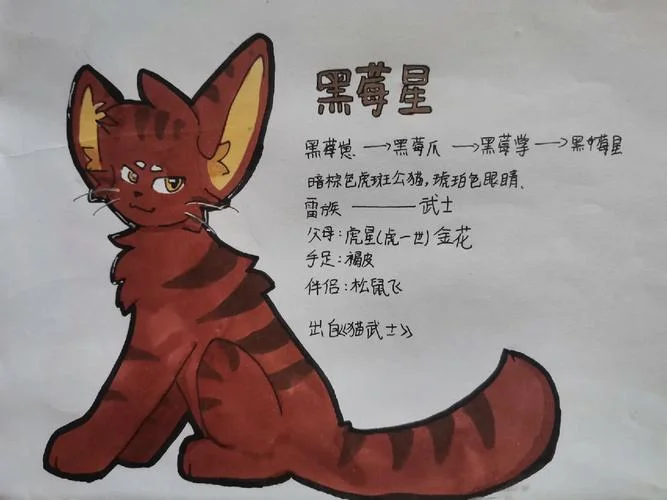 黑莓星
黑莓崽→黑莓爪→黑莓掌→黑莓星
暗棕色虎斑公猫,琥珀色眼睛、
雷族——武士
父母:虎星(虎一世)金花
手足:褐皮
伴侣:松鼠飞
出自《猫武士》